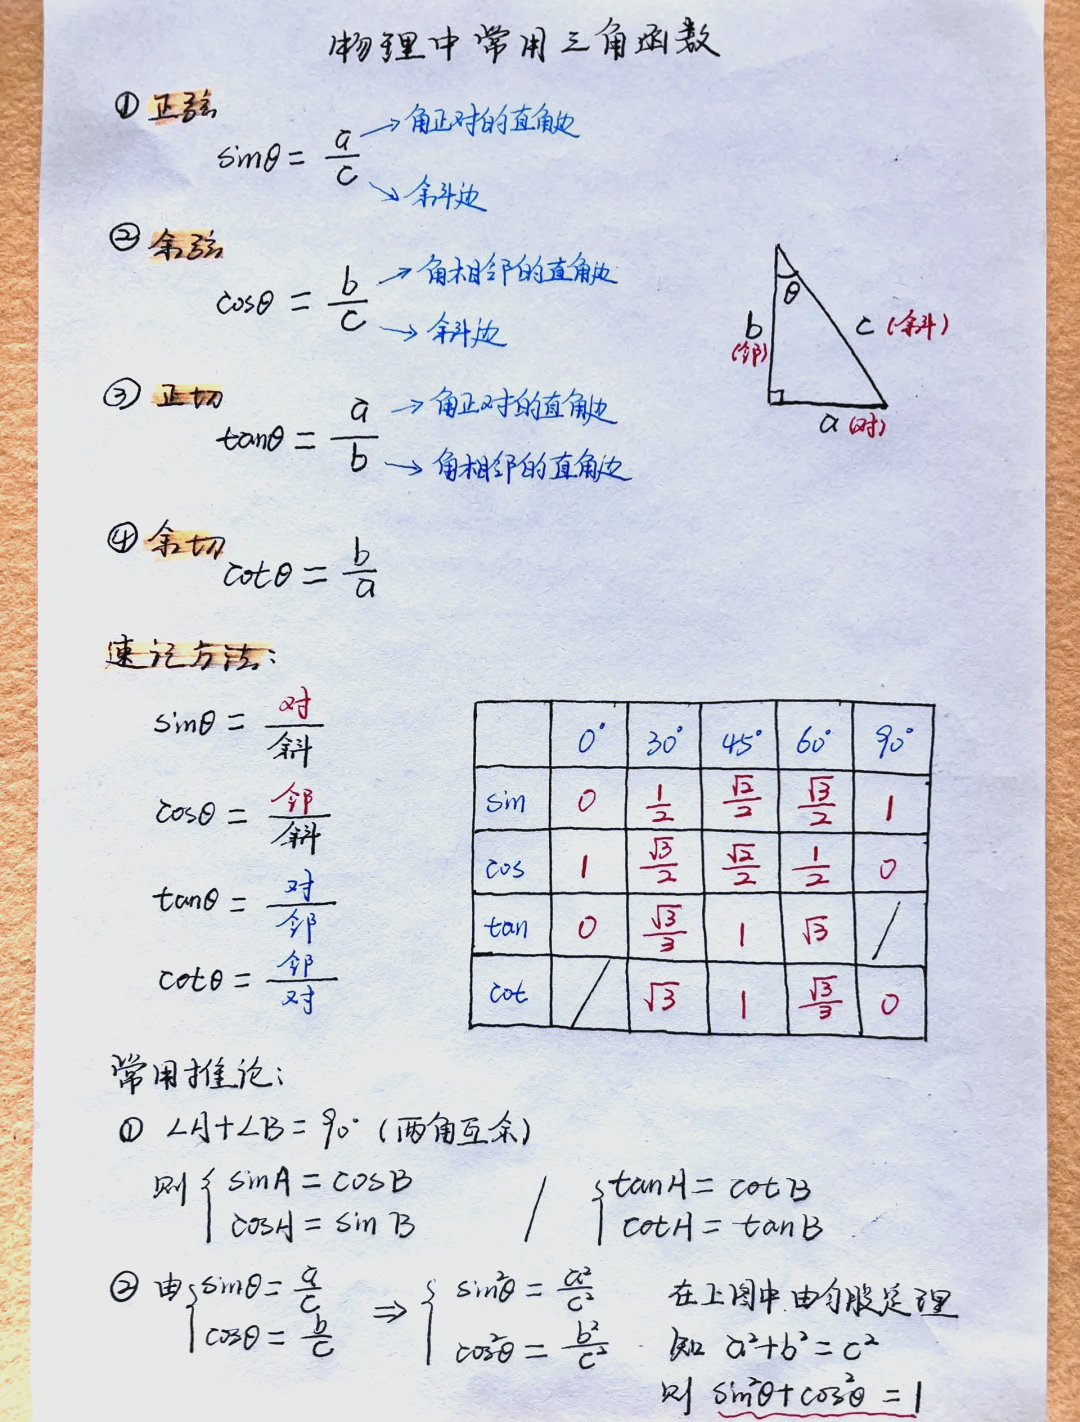 物理中常用三角函数
① 正弦
sinθ = a/c
→角正对的直角边
→余斜边
② 余弦
cosθ = b/c
→角相邻的直角边
→余斜边
③ 正切
tanθ = a/b
→角正对的直角边
→角相邻的直角边
④ 余切
cotθ = b/a
θ
b (邻)
c (余斜)
a (对)
速记方法:
sinθ = 对/斜
cosθ = 邻/斜
tanθ = 对/邻
cotθ = 邻/对
0° 30° 45° 60° 90°
sin 0 1/2 √2/2 √3/2 1
cos 1 √3/2 √2/2 1/2 0
tan 0 √3/3 1 √3 /
cot / √3 1 √3/3 0
常用推论:
① ∠A+∠B=90° (两角互余)
则 { sinA = cosB / { tanA = cotB
cosA = sinB cotA = tanB
② 由 { sinθ = a/c ⇒ { sin²θ = a²/c² 在上图中由勾股定理
cosθ = b/c cos²θ = b²/c² 知 a²+b²=c²
则 sin²θ+cos²θ=1